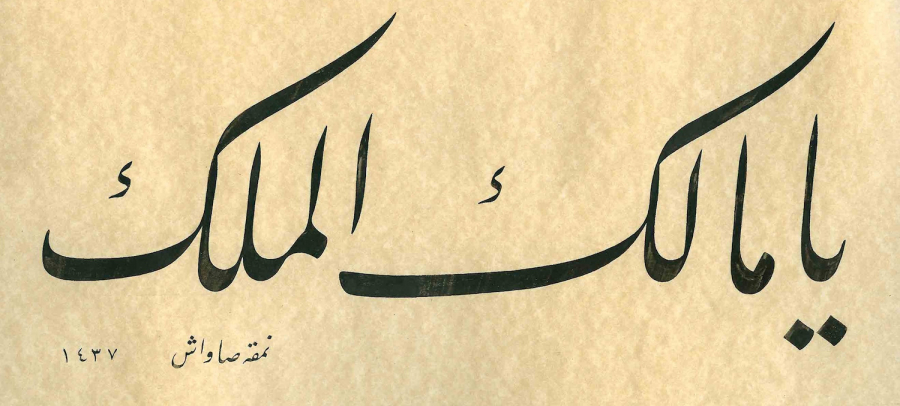 يا مالك الملك
نمقه صاواش ١٤٣٧